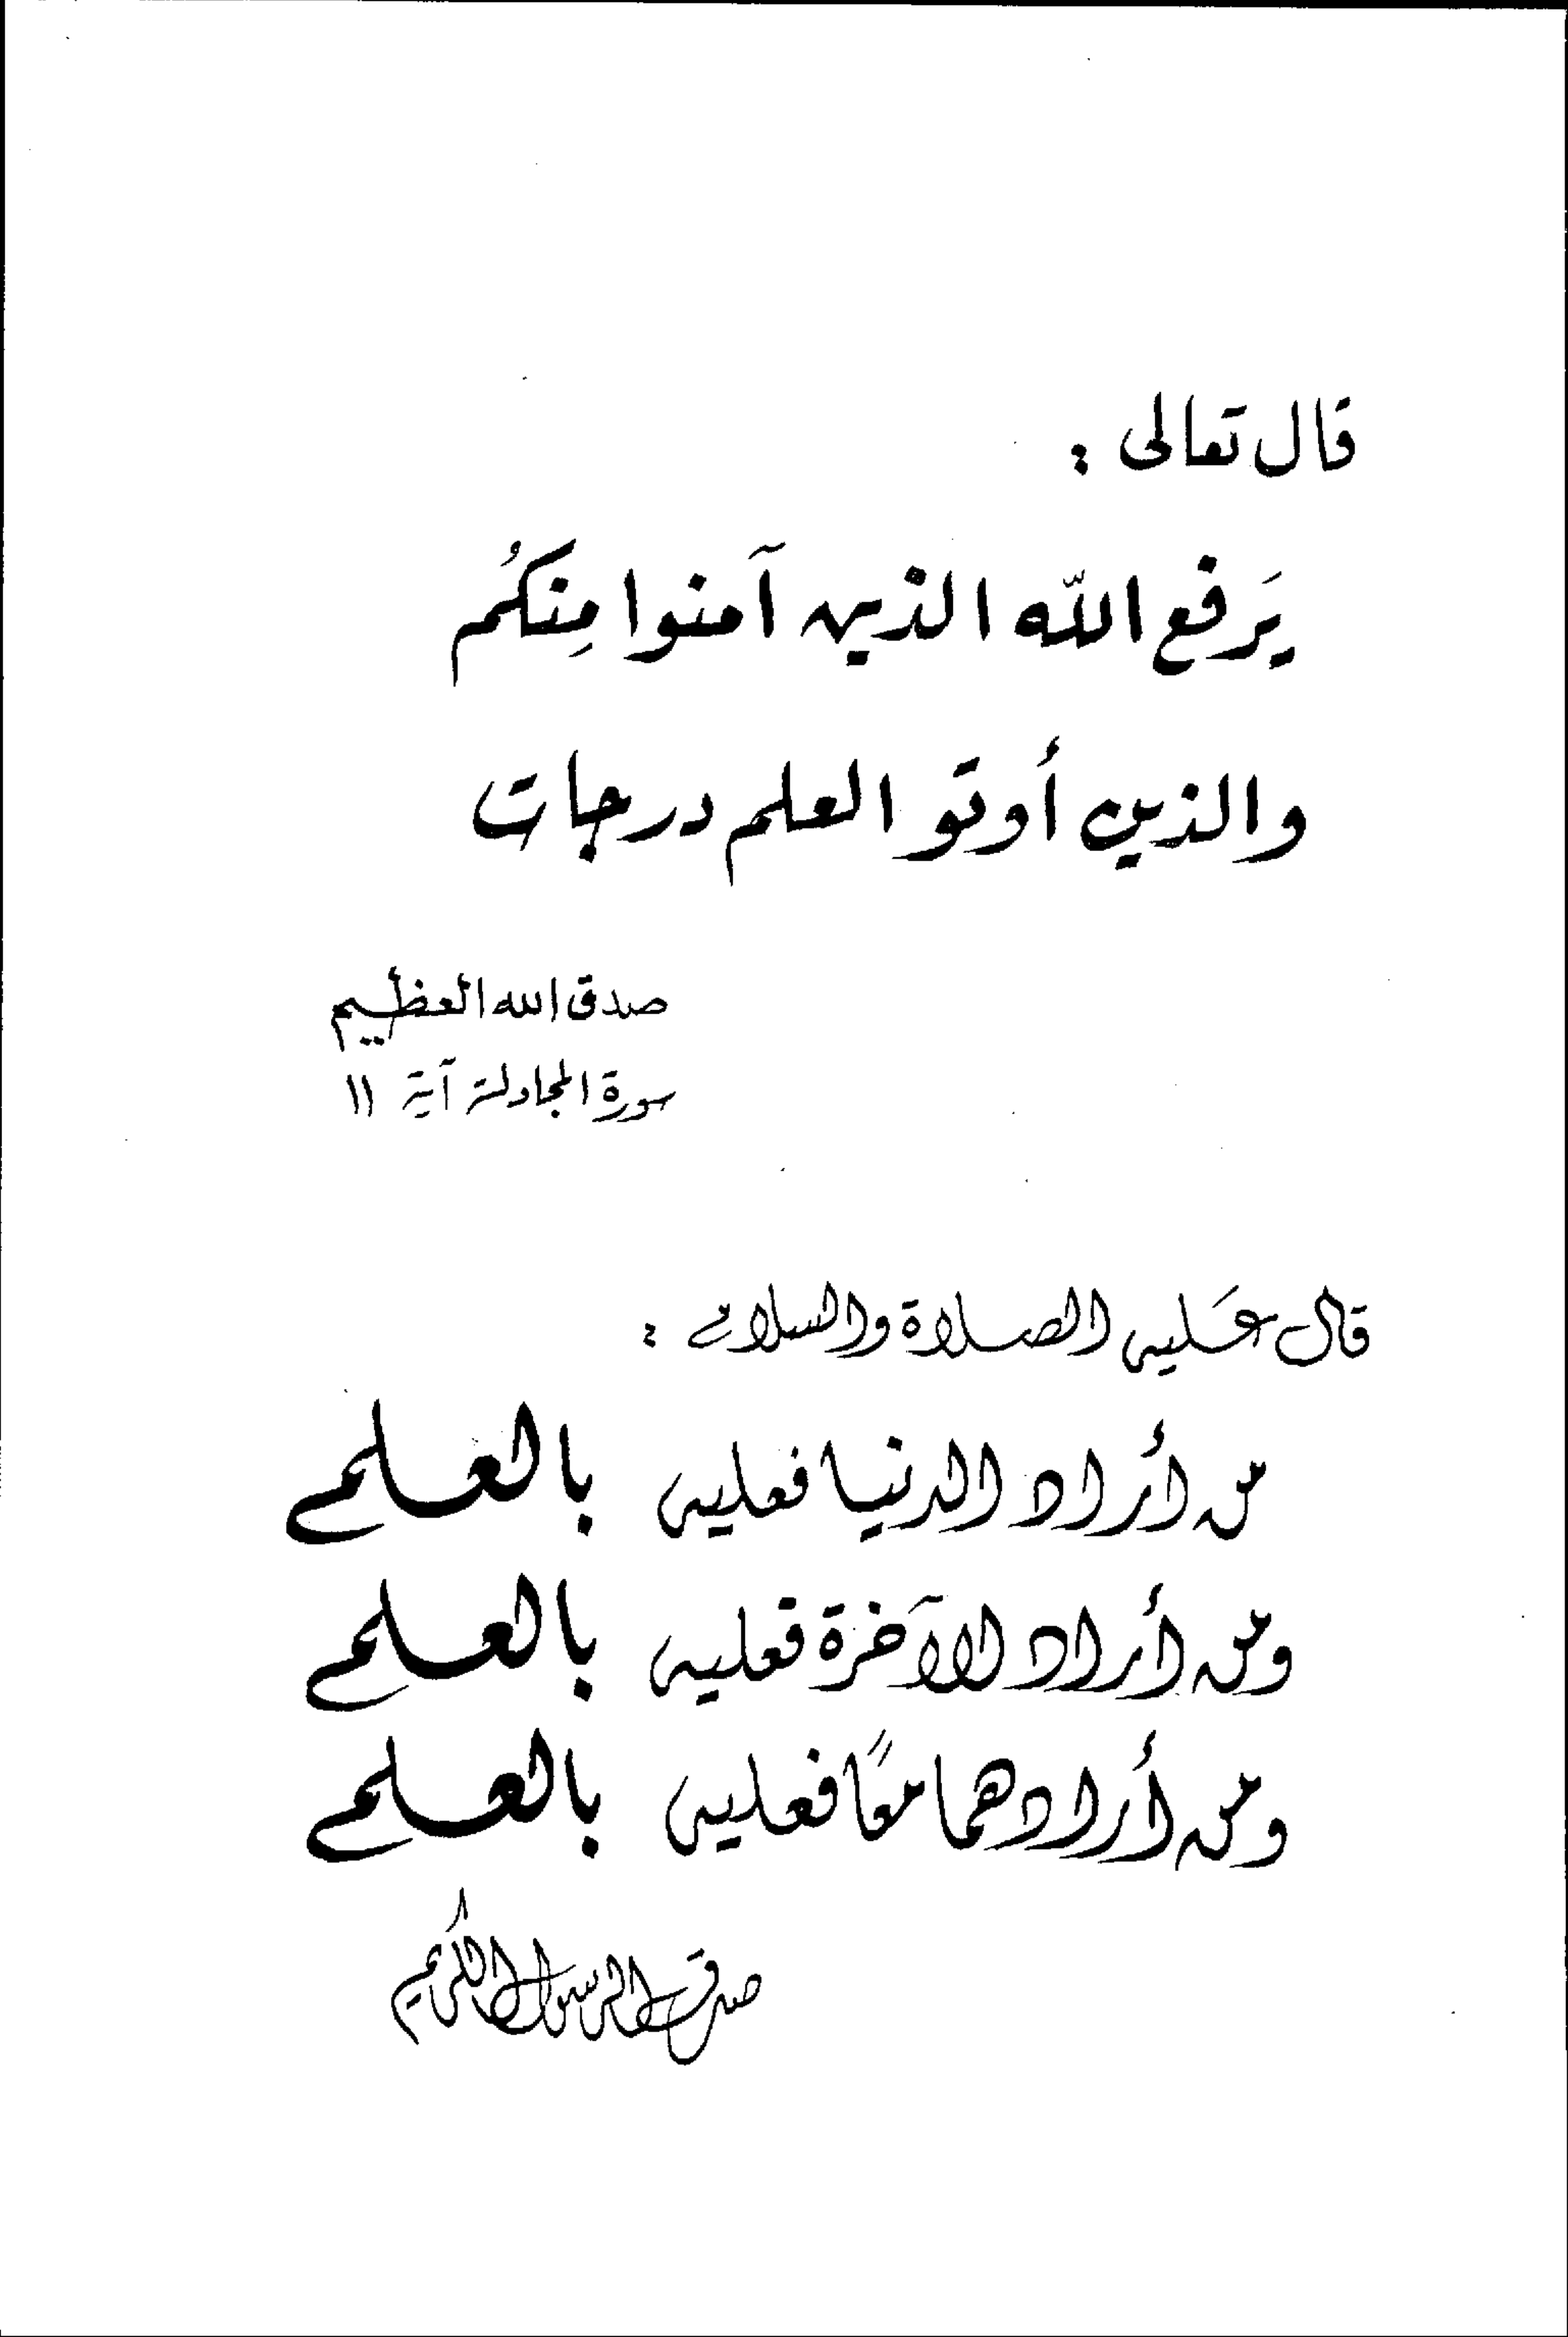 قال تعالى :
يَرفع اللّه الذين آمنوا مِنكُم
والذين أوتو العلم درجات
صدق الله العظيم
سورة المجادلة آية ١١
قال عَليه الصلاة والسلام :
من أراد الدنيا فعليه بالعلم
ومن أراد الآخرة فعليه بالعلم
ومن أرادهما معًا فعليه بالعلم
صدق الرسول الكريم